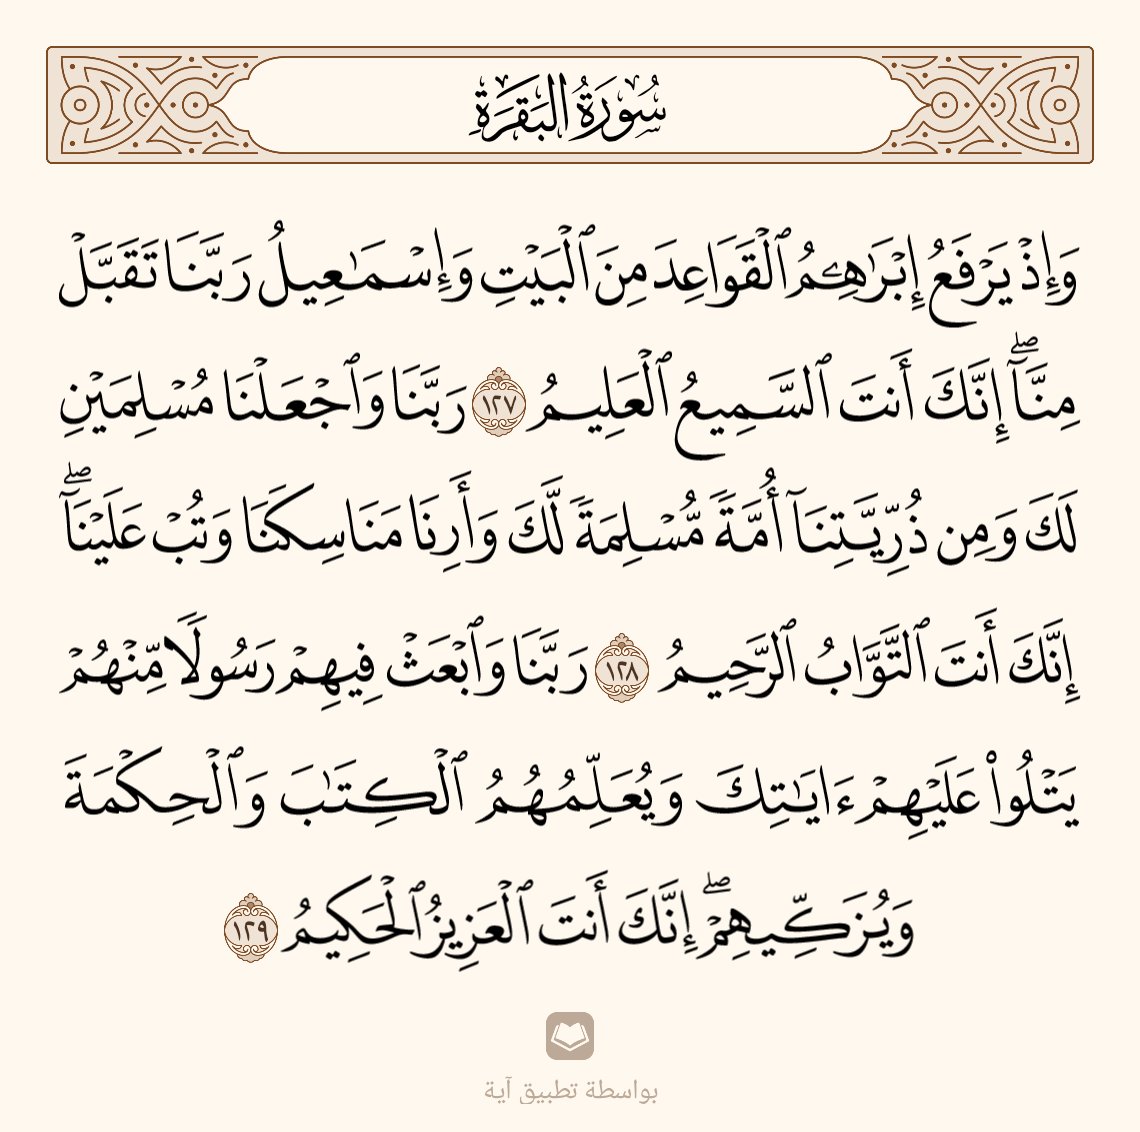 سُورَةُ البَقَرَةِ
وَإِذۡ يَرۡفَعُ إِبۡرَٰهِـۧمُ ٱلۡقَوَاعِدَ مِنَ ٱلۡبَيۡتِ وَإِسۡمَٰعِيلُ رَبَّنَا تَقَبَّلۡ
مِنَّآۖ إِنَّكَ أَنتَ ٱلسَّمِيعُ ٱلۡعَلِيمُ ١٢٧ رَبَّنَا وَٱجۡعَلۡنَا مُسۡلِمَيۡنِ
لَكَ وَمِن ذُرِّيَّتِنَآ أُمَّةٗ مُّسۡلِمَةٗ لَّكَ وَأَرِنَا مَنَاسِكَنَا وَتُبۡ عَلَيۡنَآۖ
إِنَّكَ أَنتَ ٱلتَّوَّابُ ٱلرَّحِيمُ ١٢٨ رَبَّنَا وَٱبۡعَثۡ فِيهِمۡ رَسُولٗا مِّنۡهُمۡ
يَتۡلُواْ عَلَيۡهِمۡ ءَايَٰتِكَ وَيُعَلِّمُهُمُ ٱلۡكِتَٰبَ وَٱلۡحِكۡمَةَ
وَيُزَكِّيهِمۡۖ إِنَّكَ أَنتَ ٱلۡعَزِيزُ ٱلۡحَكِيمُ ١٢٩
بواسطة تطبيق آية